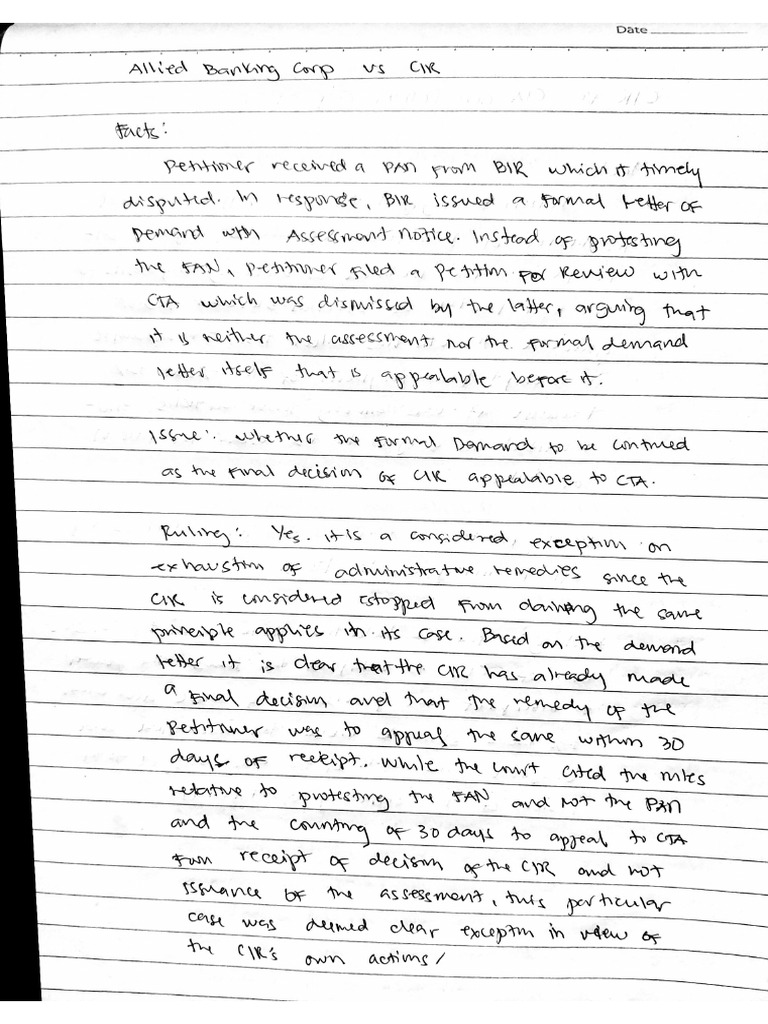 Date
Allied Banking Corp vs CIR
Facts:
Petitioner received a PAN from BIR which it timely
disputed. In response, BIR issued a Formal Letter of
Demand with Assessment Notice. Instead of protesting
the FAN, petitioner filed a Petition For Review with
CTA which was dismissed by the latter, arguing that
it is neither the assessment nor the formal demand
letter itself that is appealable before it.
Issue: whether the Formal Demand to be
as the final decision of CIR appealable to CTA.
Ruling: Yes. it is a considered exception on
exhaustion of administrative remedies since the
CIR is considered estopped from claiming the same
principle applies in its case. Based on the demand
letter it is clear that the CIR has already made
a final decision and that the remedy of the
petitioner was to appeal the same within 30
days of receipt. While the court cited the rules
relative to protesting the FAN and not the PAN
and the counting of 30 days to appeal to CTA
from receipt of decision of the CIR and not
issuance of the assessment, this particular
case was deemed clear exception in view of
the CIR's own actions/